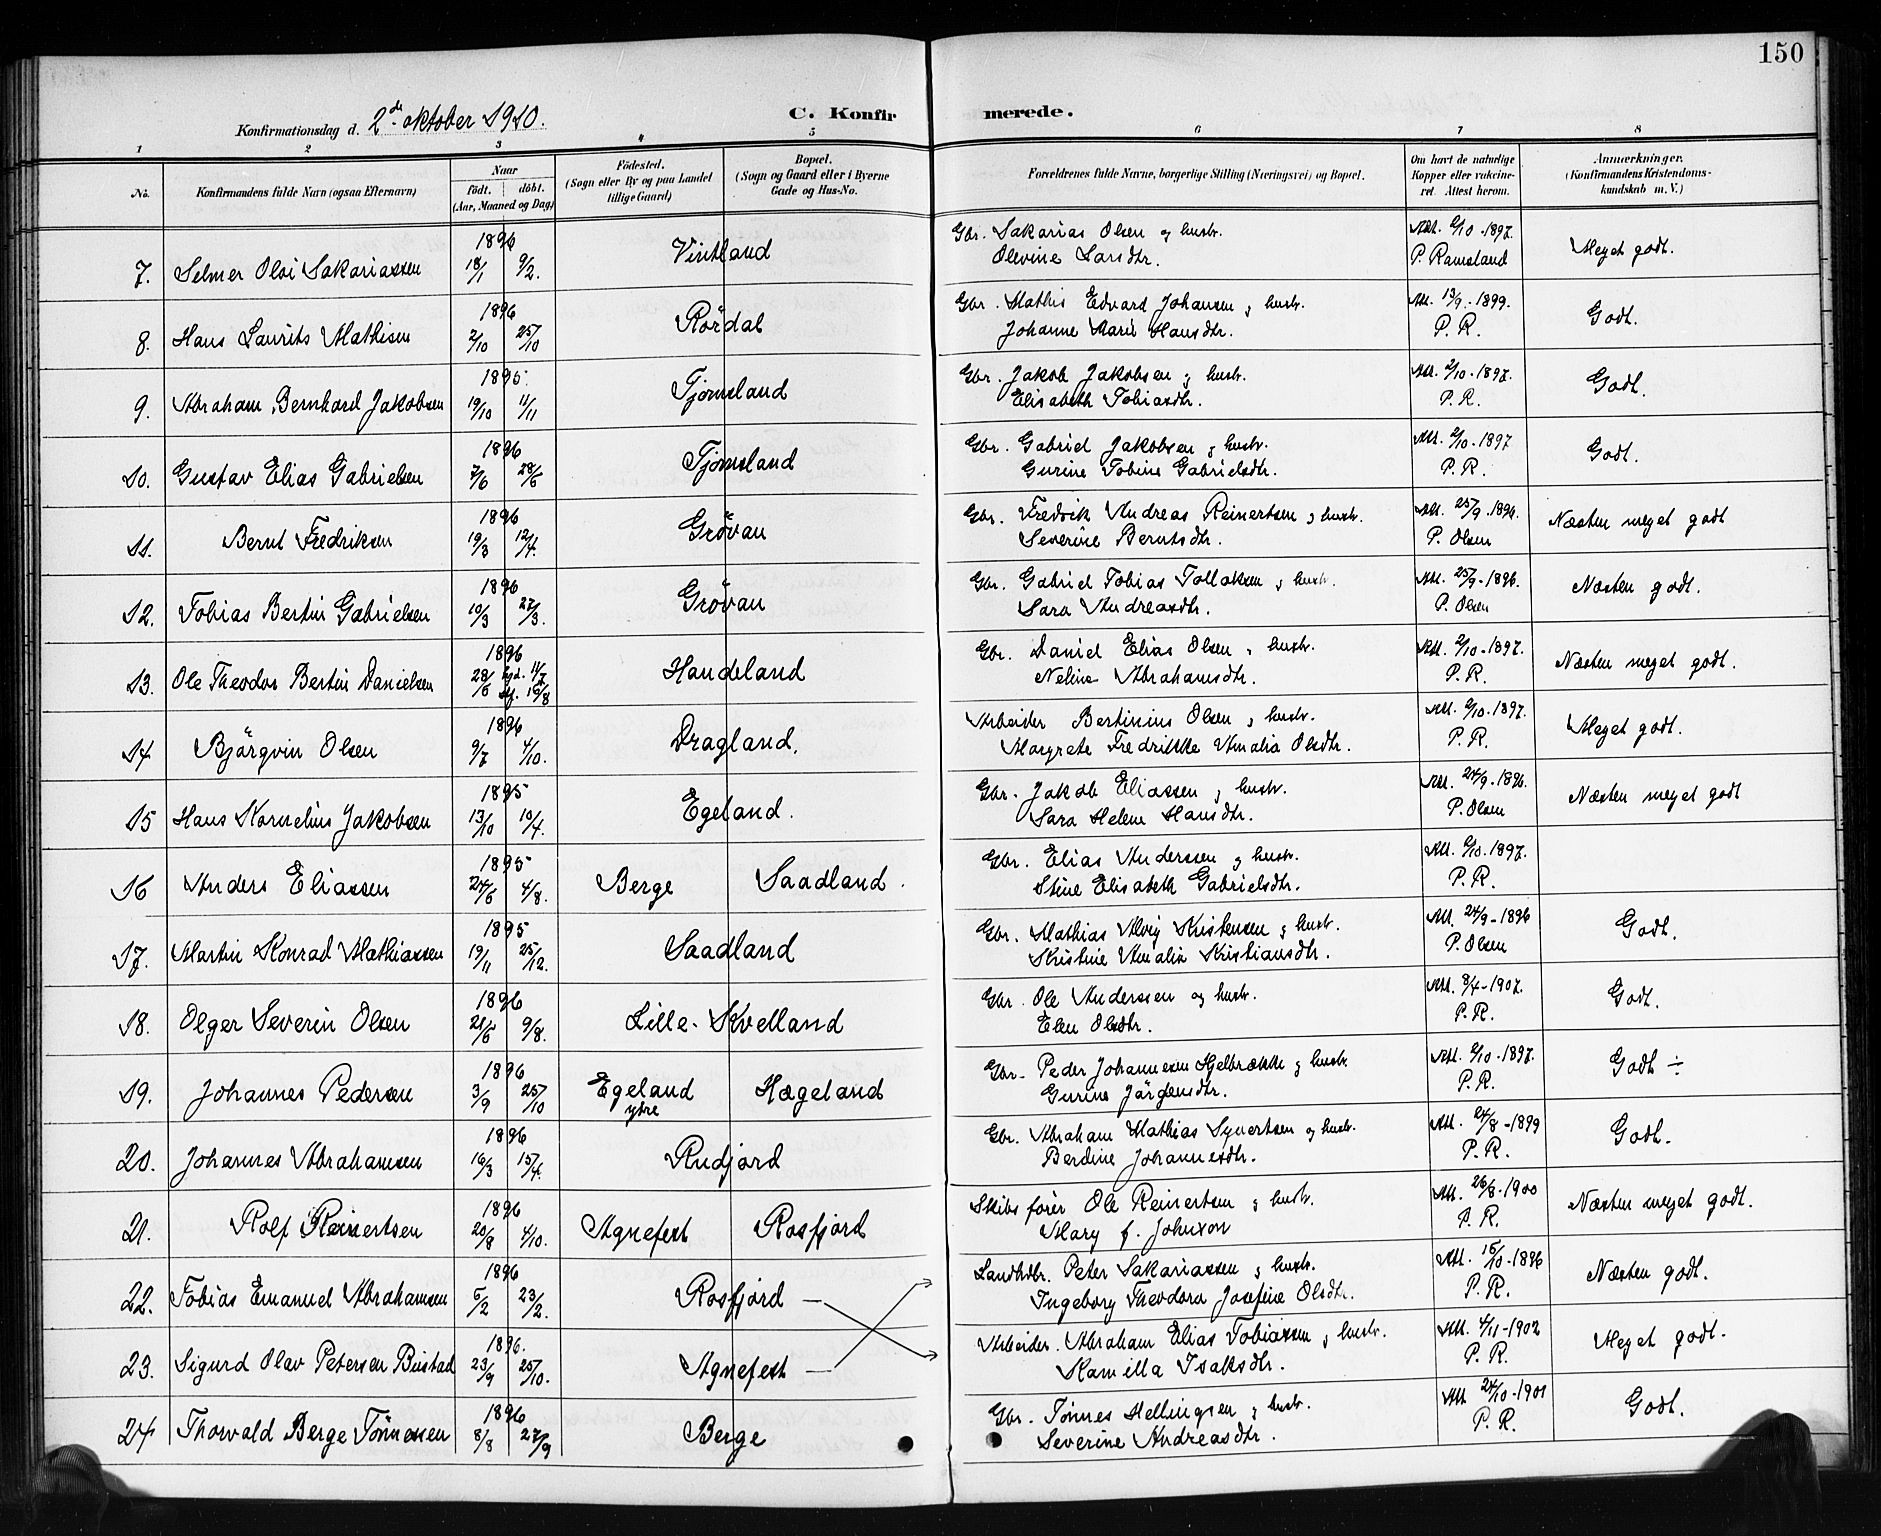 150
Konfirmationsdag d. 2de oktober 1910.
C. Konfirmerede.
1 2 3 4 5 6 7 8
No.
Konfirmandens fulde Navn (ogsaa Efternavn)
Naar
født. døbt.
(Aar, Maaned og Dag)
Fødested.
(Sogn eller By og paa Landet
tillige Gaard)
Bopæl.
(Sogn og Gaard eller i Byerne
Gade og Hus-No.
Forældrenes fulde Navne, borgerlige Stilling (Næringsvei) og Bopæl.
Om havt de naturlige
Kopper eller vakcine-
ret. Attest herom.
Anmerkninger.
(Konfirmandens Kristendoms-
kundskab m. V.)
7. Selmer Olai Sakariassen 1896 18/1 9/2. Vintland Gbr. Sakarias Olsen og hustr. Att. 2/10-1897.
Olevine Larsdtr. P. Ramsland Meget godt.
8. Hans Laurits Mathisen 1896 2/10 25/10 Rördal Gbr. Mathis Edvard Johansen og hustr. Att. 13/9-1899.
Johanne Marie Hansdtr. P. R. Godt.
9. Abraham Bernhard Jakobsen 1895. 19/10 11/11 Tjomsland Gbr. Jakob Jakobsen og hustr. Att. 2/10-1897.
Elisabeth Tobiasdtr. P. R. Godt.
10. Gustav Elias Gabrielsen 1896 7/6 28/6 Tjomsland Gbr. Gabriel Jakobsen og hustr. Att. 2/10-1897
Gurine Tobine Gabrielsdtr. P. R. Godt.
11. Bernt Fredriksen 1896 19/3 12/4. Grövan Gbr. Fredrik Andreas Reinertsen og hustr. Att. 25/9-1896.
Severine Berntsdtr. P. Olsen Næsten meget godt
12. Tobias Bertin Gabrielsen 1896 10/3 27/3. Grövan Gbr. Gabriel Tobias Tollaksen og hustr. Att. 25/9-1896.
Sara Andreasdtr. P. Olsen Næsten godt.
13. Ole Theodor Bertin Danielsen 1896 28/6 hjd. 14/7 stf. 16/8 Haudeland Gbr. Daniel Elias Olsen og hustr. Att. 2/10-1897.
Neline Abrahamsdtr. P. R. Næsten meget godt.
14 Bjärgvin Olsen 1896 9/7 4/10. Dragland. Arbeider Bertinius Olsen og hustr. Att. 2/10.1897.
Margrete Fredrikke Amalia Olsdtr. P. R. Meget godt.
15 Hans Kornelius Jakobsen 1895 13/10 10/4. Egeland. Gbr. Jakob Eliassen og hustr. Att. 24/9-1896.
Sara Helene Hansdtr. P. Olsen Næsten meget godt
16 Anders Eliassen 1895 24/6 4/8. Berge Saadland. Gbr. Elias Anderssen og hustr. Att. 2/10.1897.
Stine Elisabeth Gabrielsdtr. P. R.
17. Martin Konrad Mathiassen 1895 19/11 25/12. Saadland Gbr. Mathias Alvig Kristensen og hustr. Att. 24/9-1896
Kristine Amalia Kristiansdtr. P. Olsen Godt.
18. Olger Severin Olsen 1896 21/6 9/8. Lille-Kvelland Gbr. Ole Anderssen og hustr. Att. 8/4-1907.
Elen Olsdtr. P. R. Godt.
19. Johannes Pedersen 1896 3/9 25/10 Egeland ytre Hægeland Gbr. Peder Johannesen Hjelbrække og hustr. Att. 2/10-1897.
Gurine Jörgensdtr. P. R. Godt ÷
20. Johannes Abrahamsen 1896 16/3 15/4. Rudjord Gbr. Abraham Mathias Syvertsen og hustr. Att. 24/8-1899
Berdine Johannesdtr. P. R. Godt.
21. Rolf Reinertsen 1896 20/8 4/10. Agnefest Rosfjord Skibsfører Ole Reinertsen og hustr. Att. 26/8-1900
Mary f. Johnson P. R. Næsten meget godt.
22. Tobias Emanuel Abrahamsen 1896 5/2 23/2. Rosfjord Landhdlr. Peter Sakariassen og hustr. Att. 15/10-1896
Ingeborg Theodora Josefine Olsdtr. P. R. Næsten godt.
23. Sigurd Olav Petersen Büstad 1896. 23/9 25/10. Agnefest Arbeider. Abraham Elias Tobiassen og hustr. Att. 4/11-1902
Kamilla Isaksdtr. P. R. Meget godt.
24 Thorvald Berge Tönnessen 1896 8/8 27/9 Berge Gbr. Tönnes Mellingsen og hustr. Att 24/10-1901
Severine Andreasdtr. P. R. Godt.